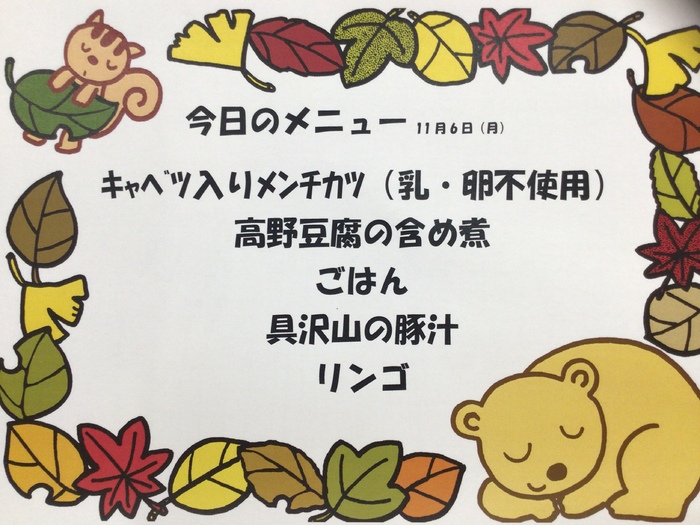 今日のメニュー 11月6日（月）
ｷｬﾍﾞﾂ入りﾒﾝﾁｶﾂ（乳・卵不使用）
高野豆腐の含め煮
ごはん
具沢山の豚汁
リンゴ